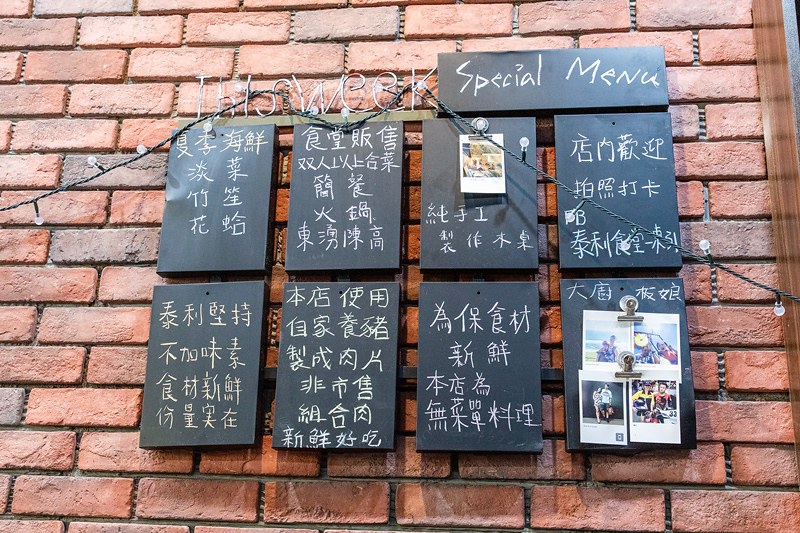 This Week
Special Menu
夏季海鮮
淡菜
竹笙
花蛤
食堂販售
双人以上合菜
簡餐
火鍋
東湧陳高
純手工
製作木桌
店內歡迎
拍照打卡
泰利食堂-東引
泰利堅持
不加味素
食材新鮮
份量実在
本店使用
自家養豬
製成肉片
非市售
組合肉
新鮮好吃
為保食材
新鮮
本店為
無菜單料理
大廚 板娘